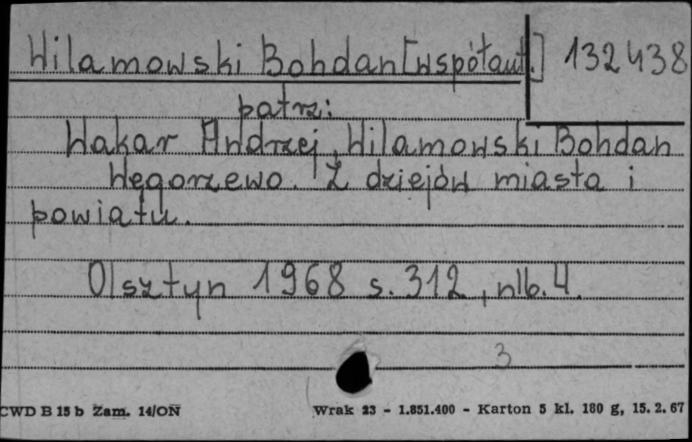 Wilamowski Bohdan [współaut.] 132438
patrz:
Wakar Andrzej, Wilamowski Bohdan
Węgorzewo. Z dziejów miasta i
powiatu.
Olsztyn 1968 s. 312, nlb. 4.
3
CWD B 15 b Zam. 14/ON Wrak 23 - 1.851.400 - Karton 5 kl. 180 g, 15. 2. 67